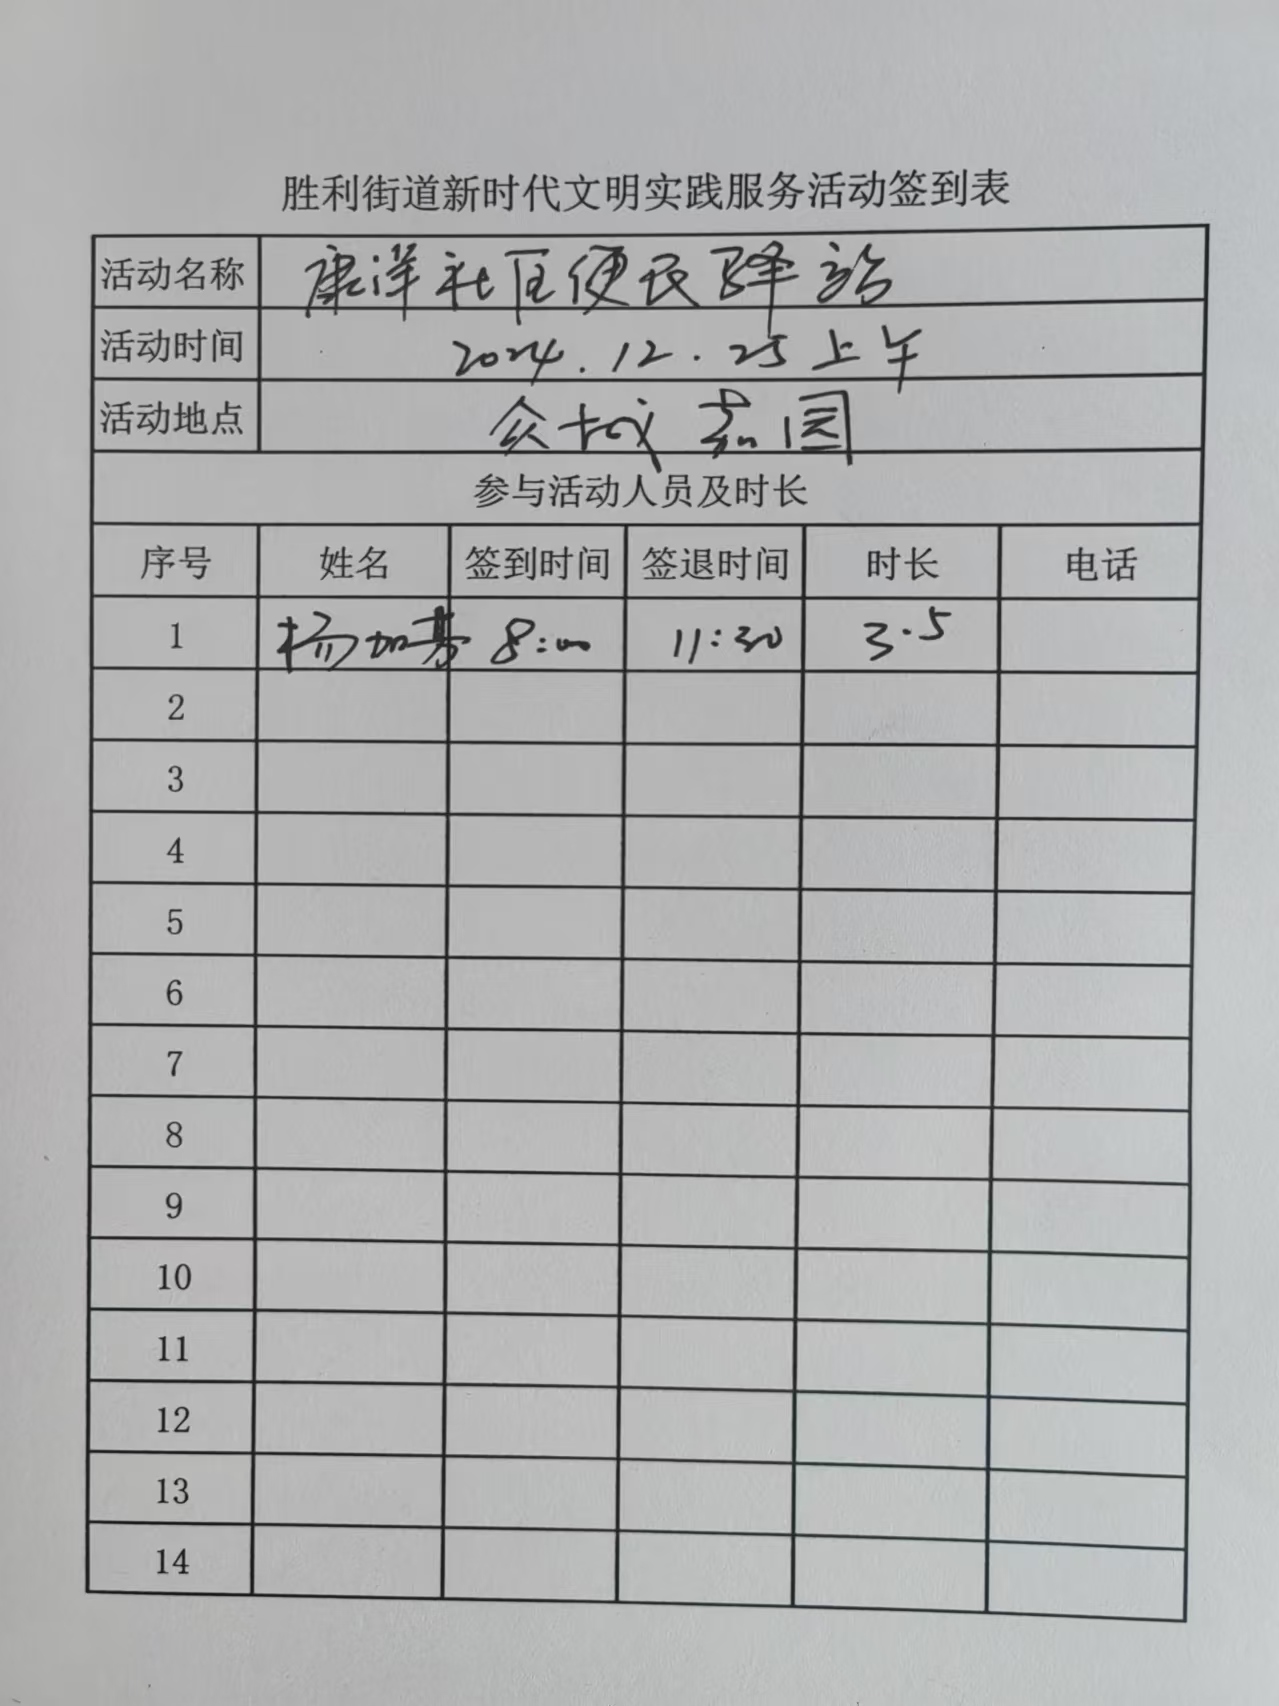 胜利街道新时代文明实践服务活动签到表
活动名称 康洋社区便民驿站
活动时间 2024.12.25上午
活动地点 众城嘉园
参与活动人员及时长
序号 姓名 签到时间 签退时间 时长 电话
1 杨加 8:00 11:30 3.5
2
3
4
5
6
7
8
9
10
11
12
13
14